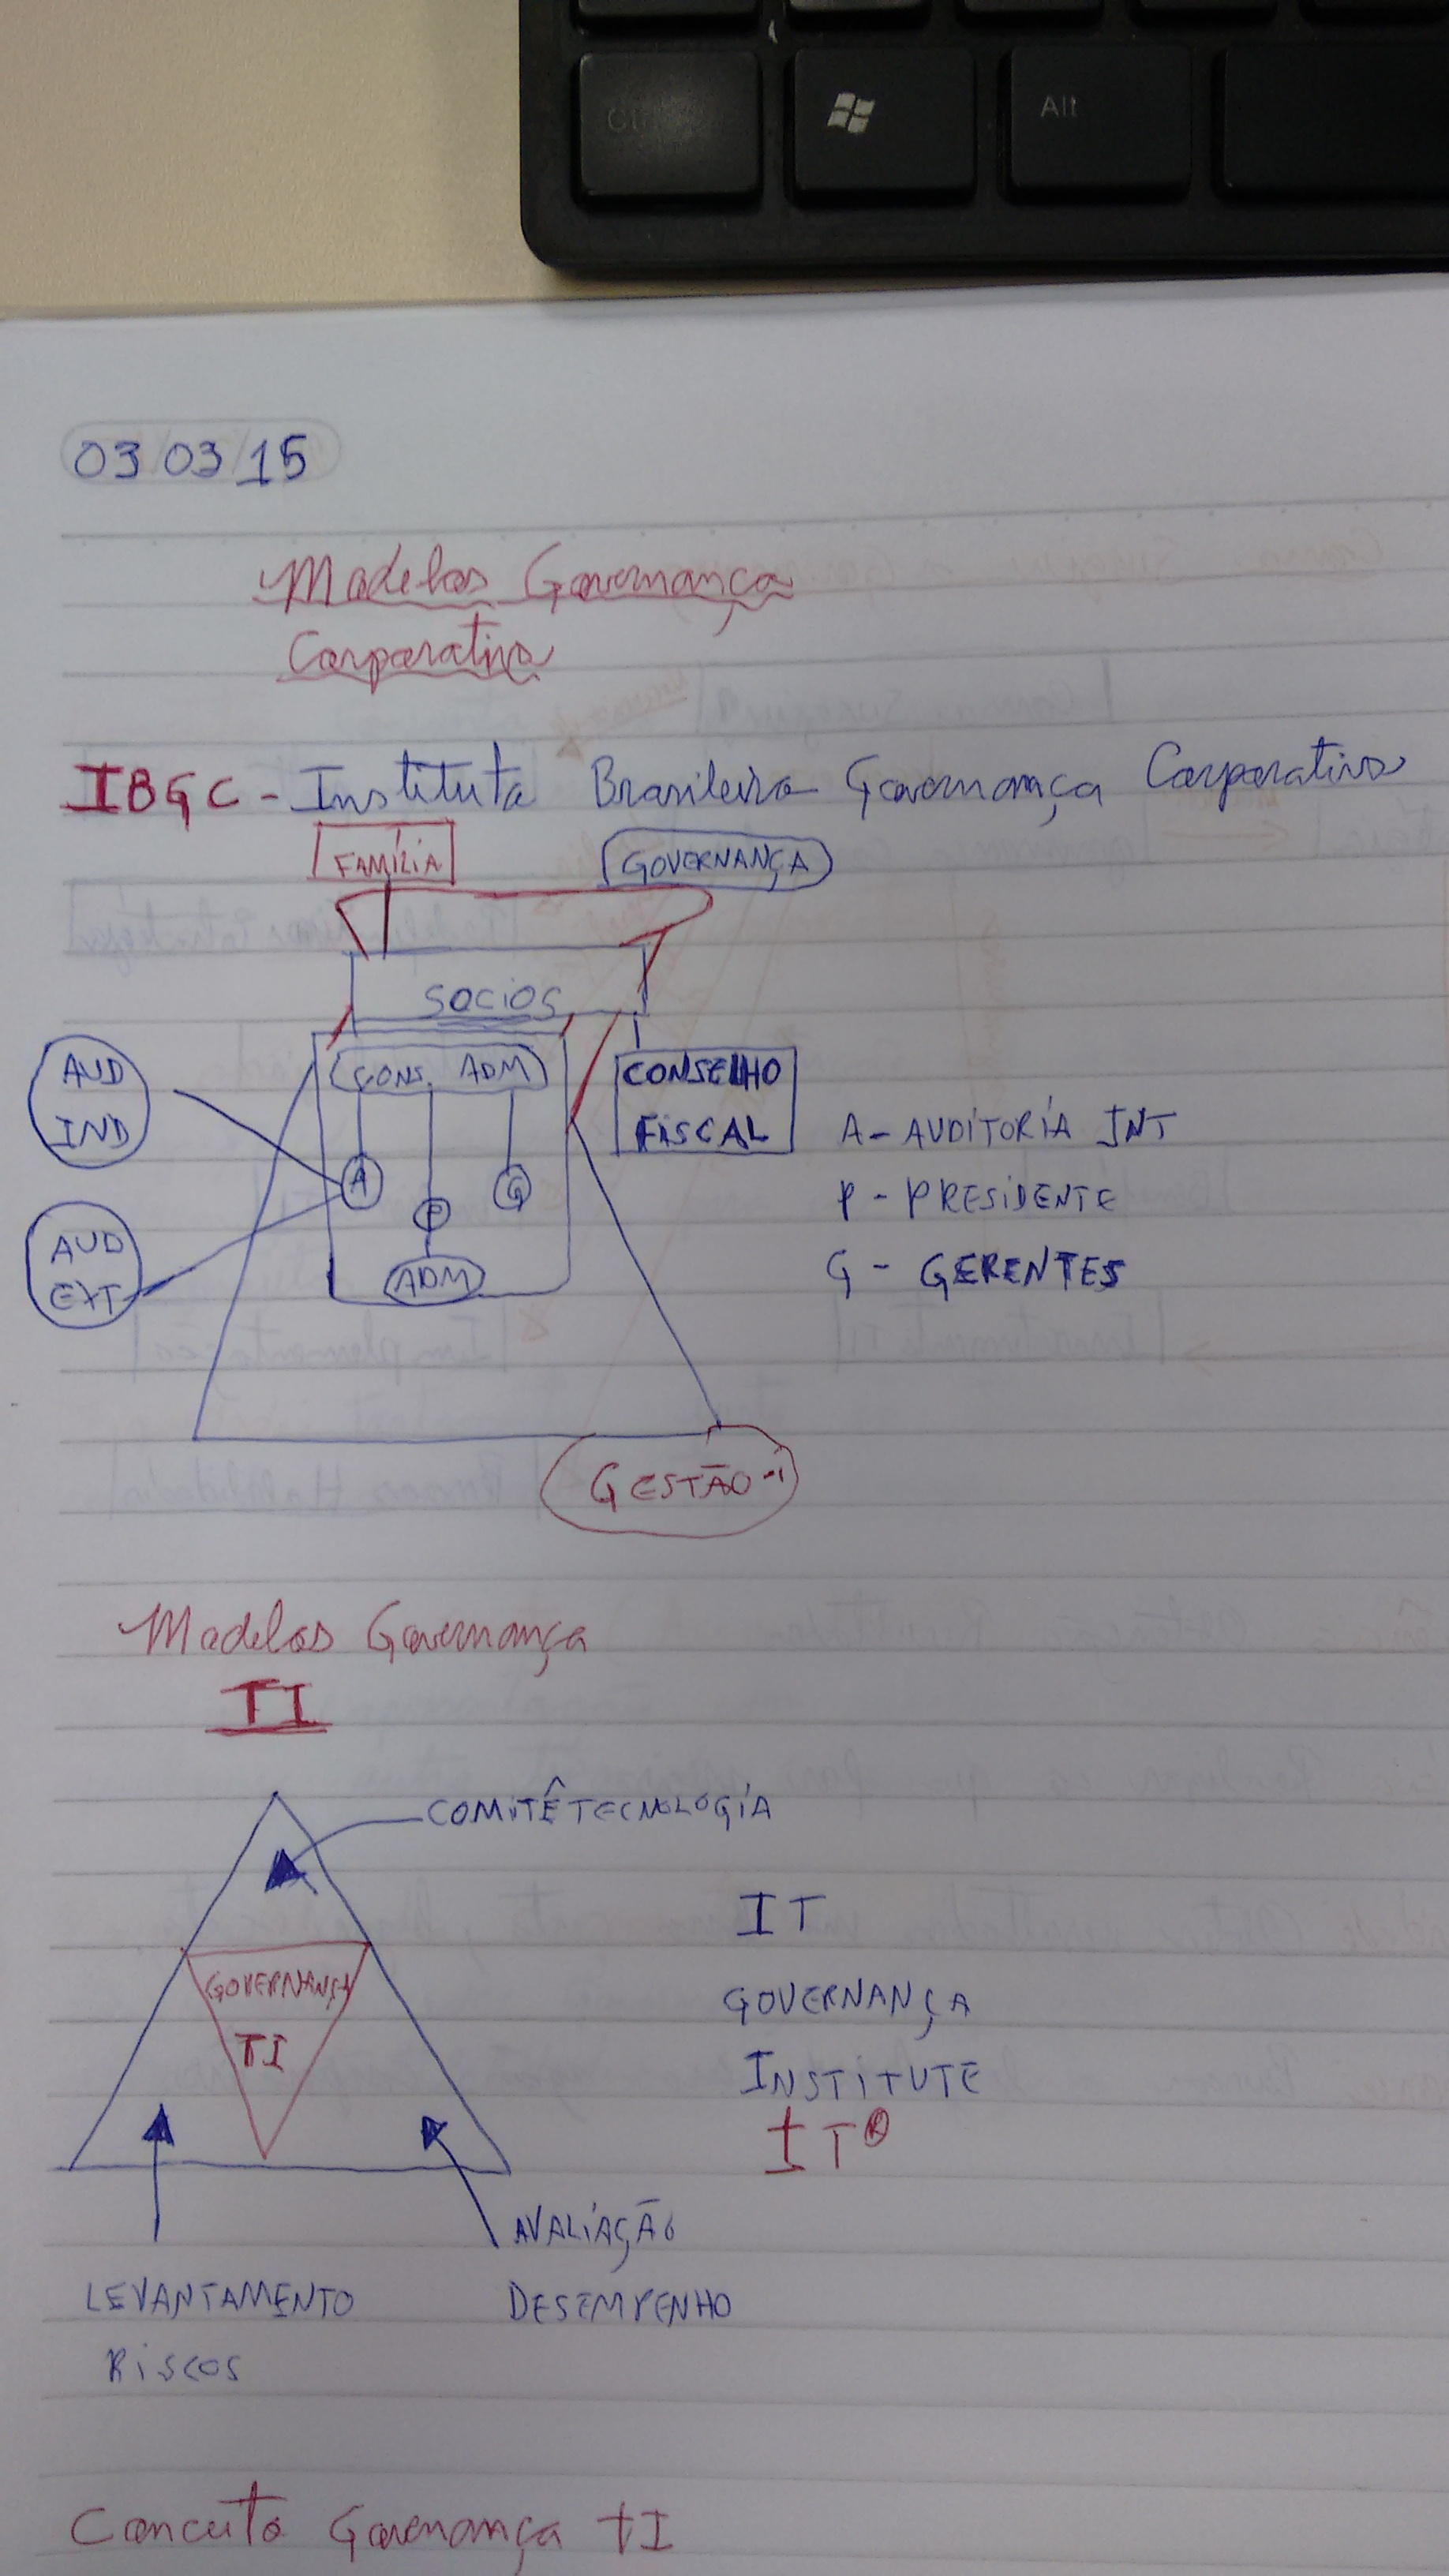 Alt
03 03 15
Modelos Governança
Corporativa
IBGC - Instituto Brasileiro Governança Corporativa
FAMÍLIA
GOVERNANÇA
SOCIOS
CONS. ADM
AUD
IND
CONSELHO
FISCAL
A
P
G
ADM
AUD
EXT
A - AUDITORIA INT
P - PRESIDENTE
G - GERENTES
GESTÃO
Modelos Governança
TI
COMITÊ TECNOLOGIA
GOVERNANÇA
TI
IT
GOVERNANÇA
INSTITUTE
IT®
LEVANTAMENTO
RISCOS
AVALIAÇÃO
DESEMPENHO
Conceito Governança TI